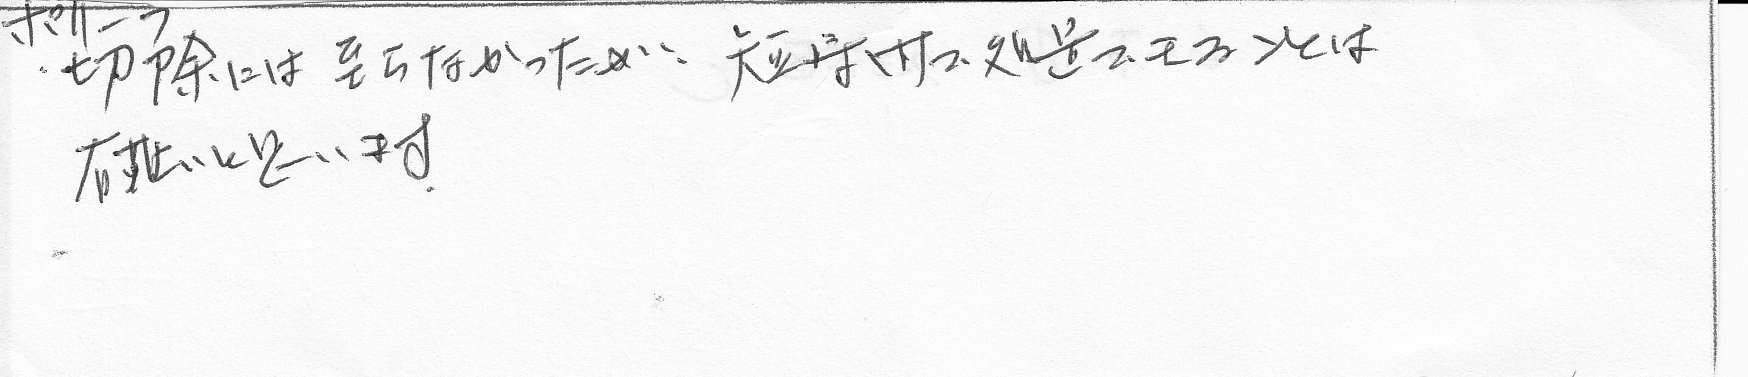 ポリープ
切除には至らなかったが、短時間で処置できることは
有難いと思います.